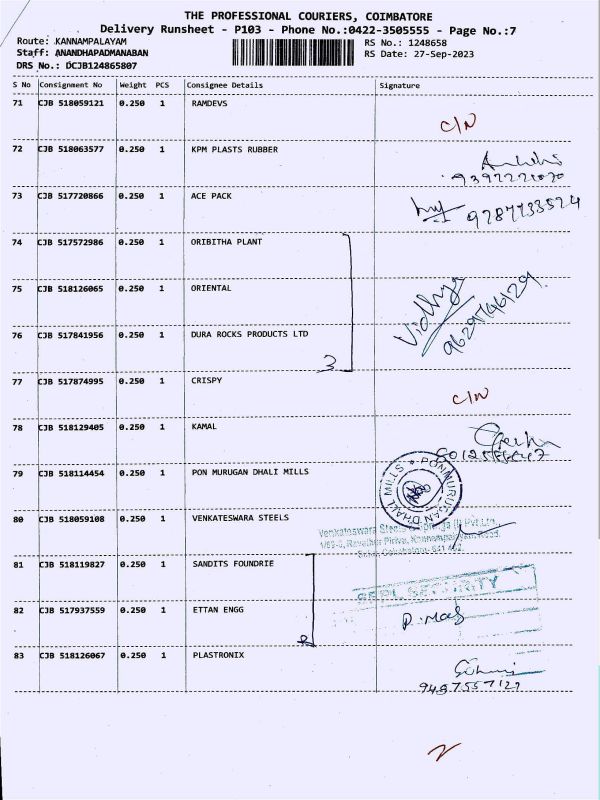 THE PROFESSIONAL COURIERS, COIMBATORE
Delivery Runsheet - P103 - Phone No.:0422-3505555 - Page No.:7
Route: KANNAMPALAYAM RS No.: 1248658
Staff: ANANDHAPADMANABAN RS Date: 27-Sep-2023
DRS No.: DCJB124865807
S No Consignment No Weight PCS Consignee Details Signature
71 CJB 518059121 0.250 1 RAMDEVS
C/N
72 CJB 518063577 0.250 1 KPM PLASTS RUBBER
73 CJB 517720866 0.250 1 ACE PACK
74 CJB 517572986 0.250 1 ORIBITHA PLANT
75 CJB 518126065 0.250 1 ORIENTAL
Vidhya
76 CJB 517841956 0.250 1 DURA ROCKS PRODUCTS LTD
3
77 CJB 517874995 0.250 1 CRISPY
C/N
78 CJB 518129405 0.250 1 KAMAL
79 CJB 518114454 0.250 1 PON MURUGAN DHALI MILLS
PONMURUGAN DHALL MILLS
80 CJB 518059108 0.250 1 VENKATESWARA STEELS
Venkateswara Steels
81 CJB 518119827 0.250 1 SANDITS FOUNDRIE
SECURITY
82 CJB 517937559 0.250 1 ETTAN ENGG
83 CJB 518126067 0.250 1 PLASTRONIX
9487557127